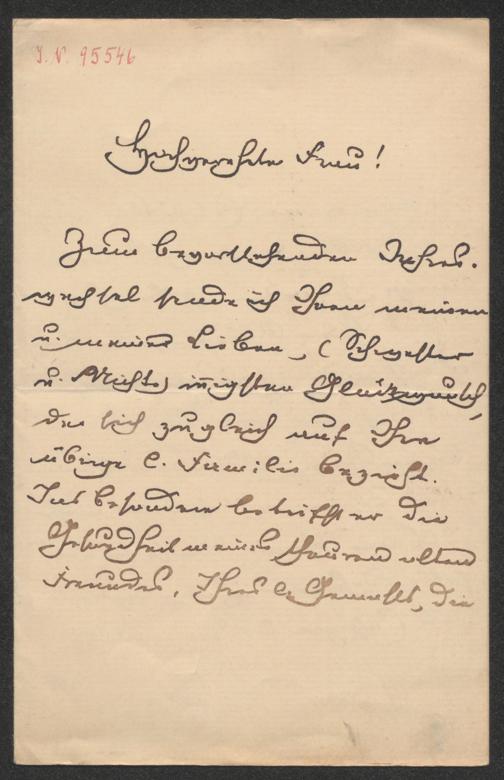 I. N. 95546
Hochverehrte Frau!
Zum bevorstehenden Jahres-
wechsel sende ich Ihnen meinen
u. meiner Lieben, (Schwester
u. Nichte) innigsten Glückwunsch,
der sich zugleich auf Ihre
übrige l. Familie bezieht.
Insbesondere betrifft er die
Gesundheit meines theuren alten
Freundes, Ihres l. Gemahls, die